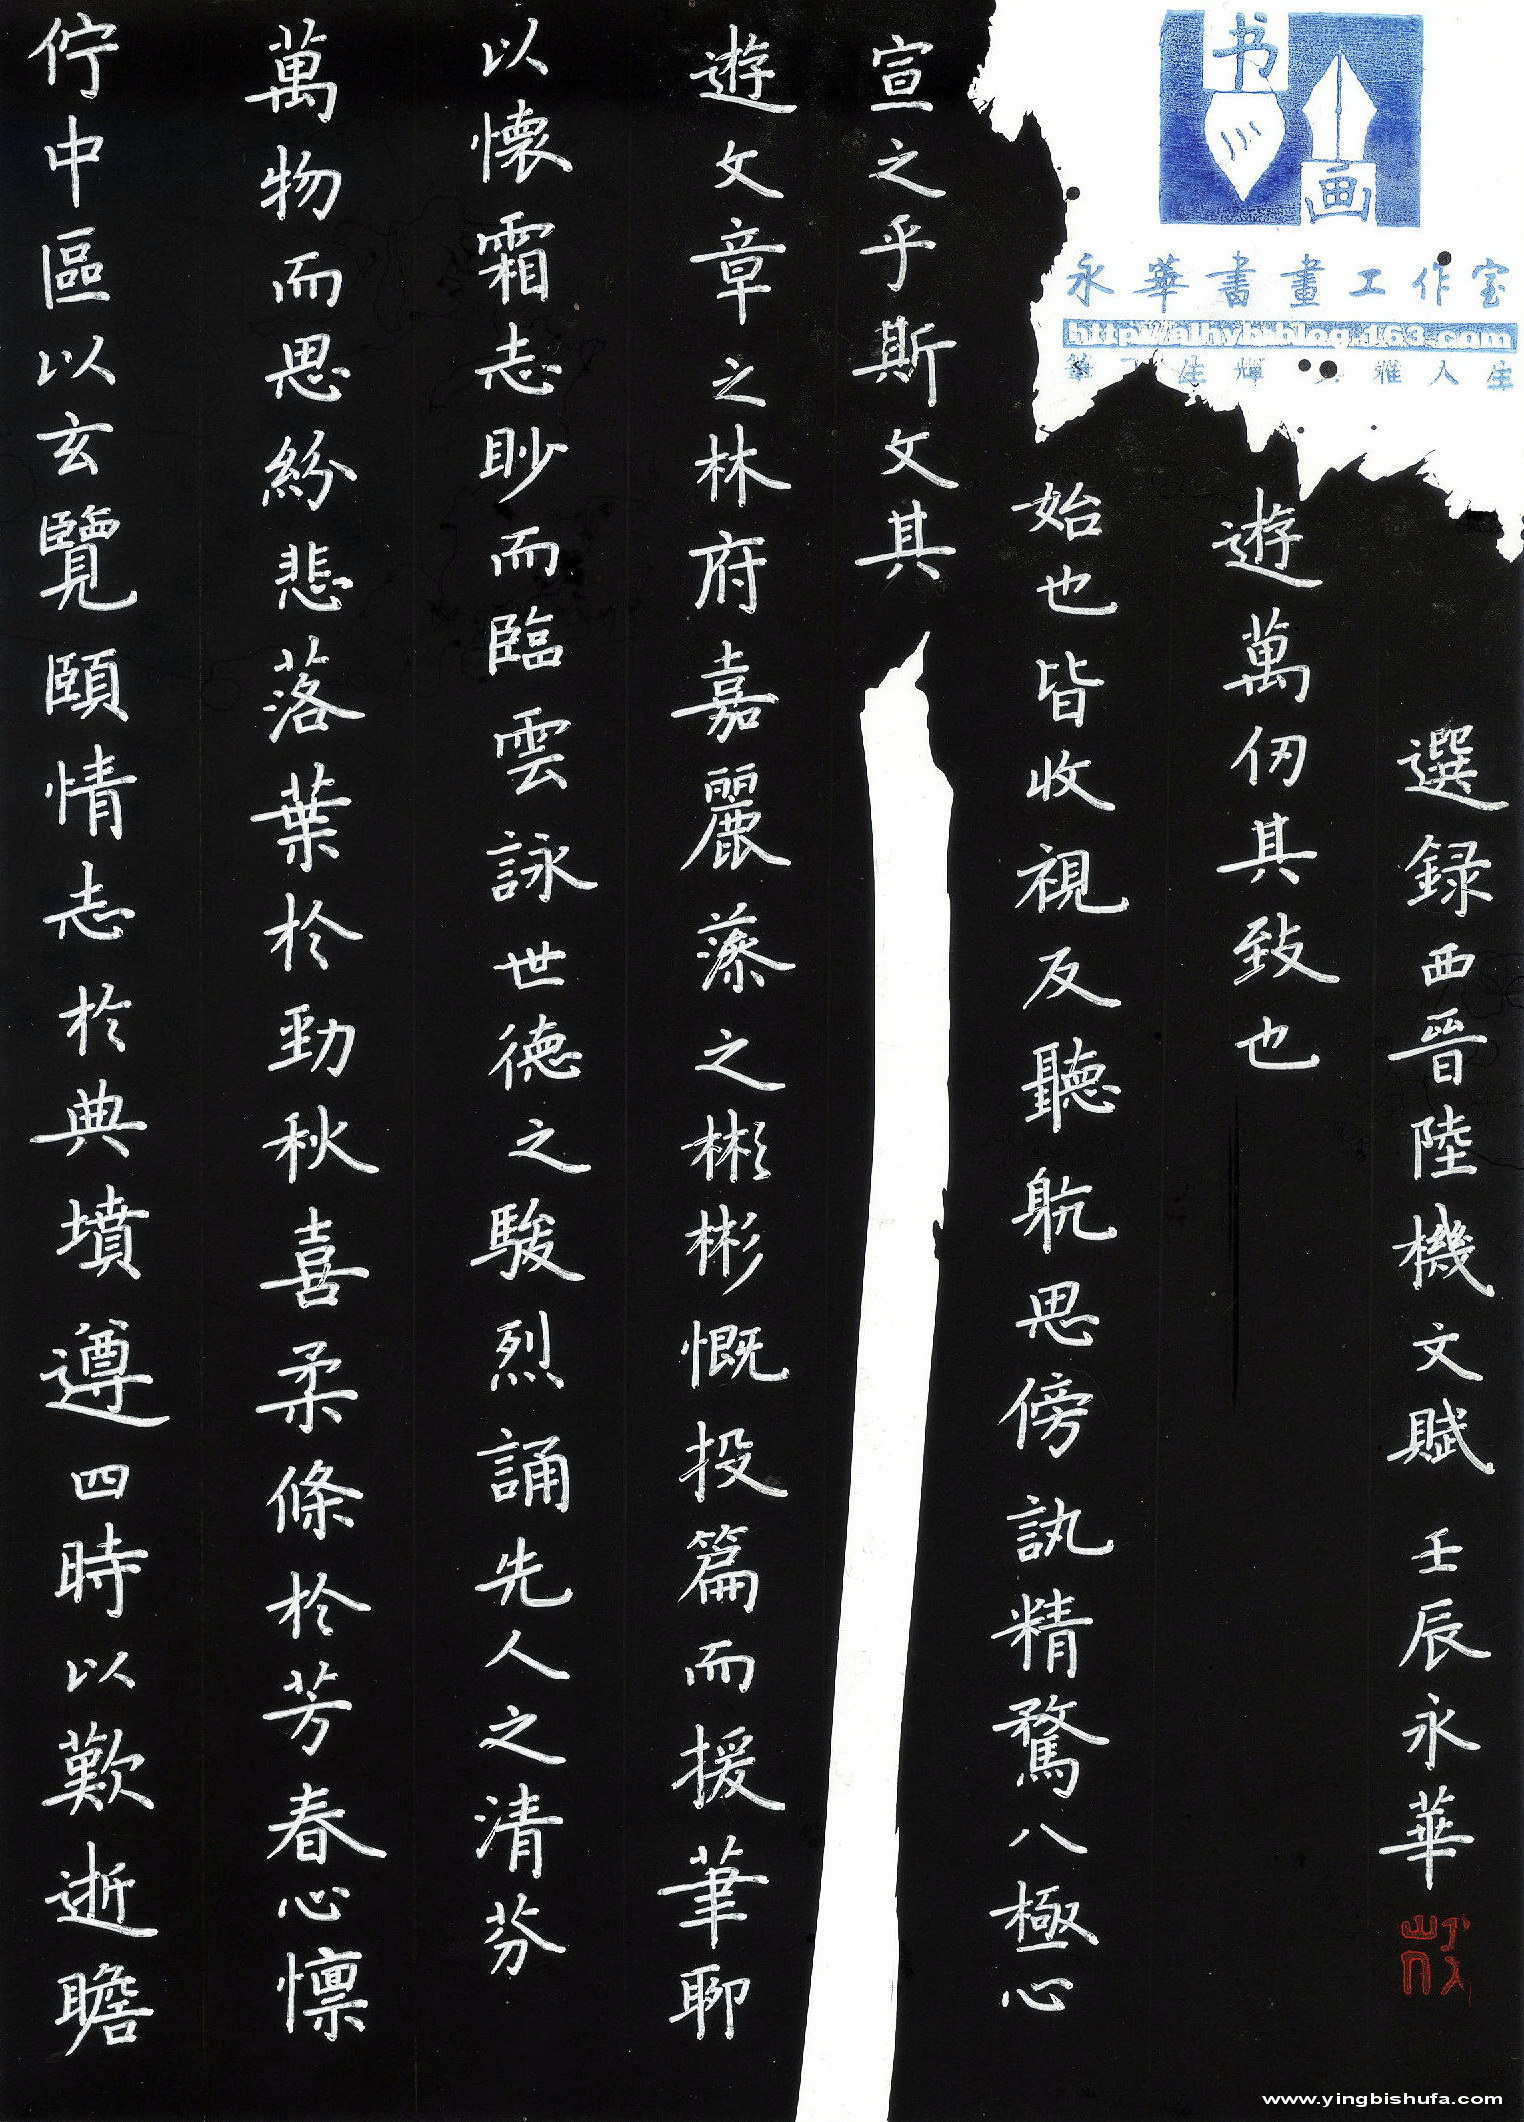 佇中區以玄覽頤情志於典墳遵四時以歎逝瞻
萬物而思紛悲落葉於勁秋喜柔條於芳春心懍
以懷霜志眇而臨雲詠世德之駿烈誦先人之清芬
遊文章之林府嘉麗藻之彬彬慨投篇而援筆聊
宣之乎斯文其
始也皆收視反聽躭思傍訊精騖八極心
遊萬仞其致也
選録西晉陸機文賦 壬辰永華
书画
永華書畫工作室
生輝 雅人生
www.yingbishufa.com